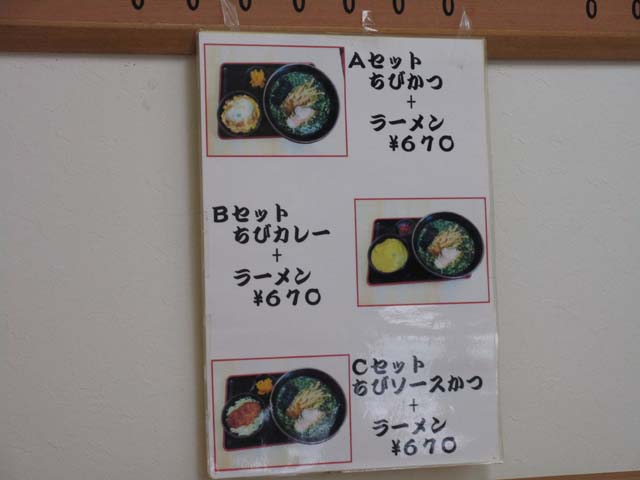 Aセット
ちびかつ
+
ラーメン
¥670
Bセット
ちびカレー
+
ラーメン
¥670
Cセット
ちびソースかつ
+
ラーメン
¥670